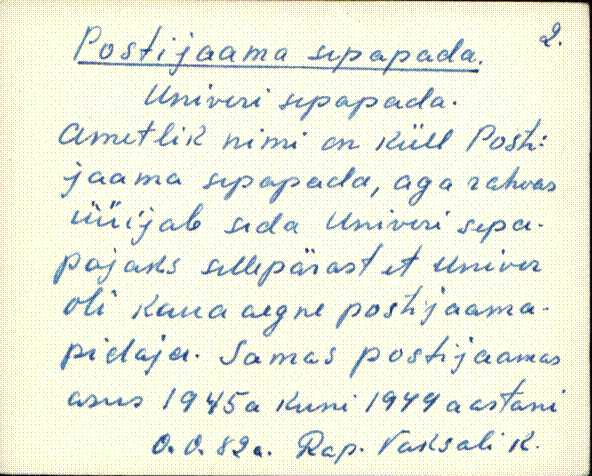 2.
Postijaama sepapada.
Univeri sepapada.
Ametlik nimi on küll Posti-
jaama sepapada, aga rahvas
hüüijab seda Univeri sepa-
pajaks sellepärast et Univer
oli kaua aegne postijaama-
pidaja. Samas postijaamas
asus 1945a kuni 1949 aastani
O.O. 82a. Rap. Vaksali k.